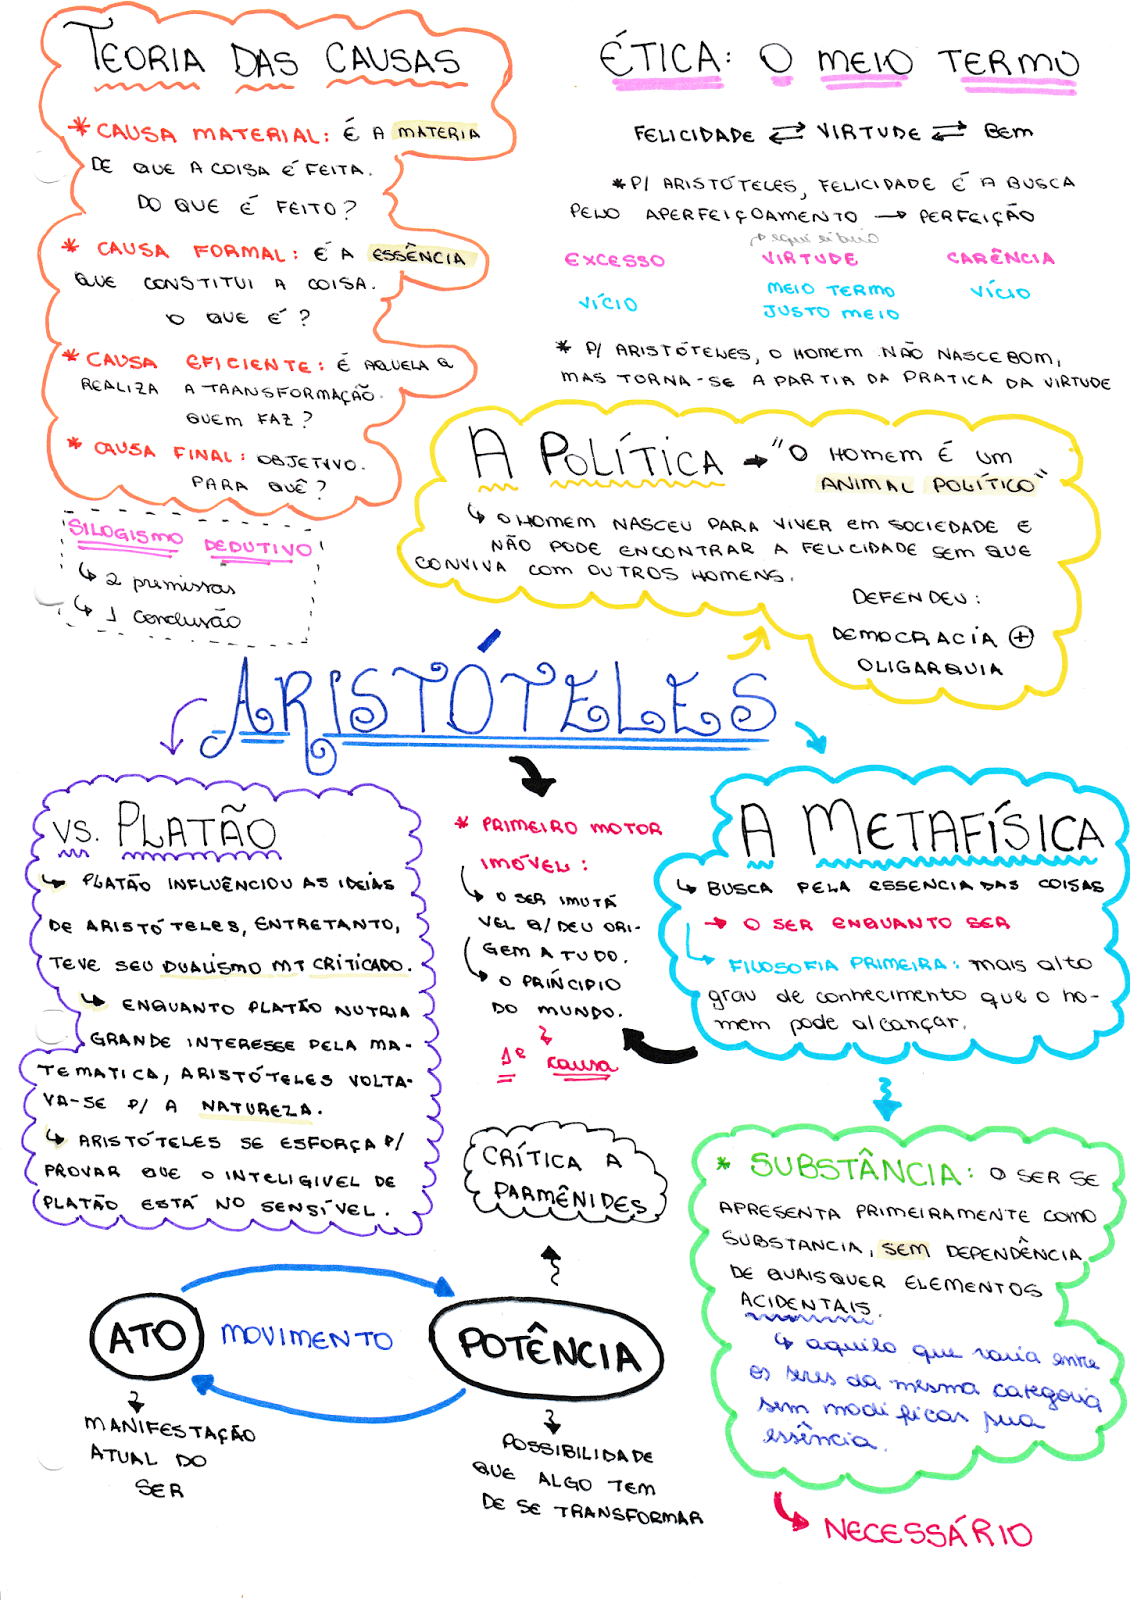 TEORIA DAS CAUSAS
* CAUSA MATERIAL: É A MATERIA
DE QUE A COISA É FEITA.
DO QUE É FEITO?
* CAUSA FORMAL: É A ESSÊNCIA
QUE CONSTITUI A COISA.
O QUE É?
* CAUSA EFICIENTE: É AQUELA Q
REALIZA A TRANSFORMAÇÃO.
QUEM FAZ?
* CAUSA FINAL: OBJETIVO.
PARA QUÊ?
SILOGISMO DEDUTIVO
↳ 2 premissas
↳ 1 conclusão
ÉTICA: O MEIO TERMO
FELICIDADE ⇄ VIRTUDE ⇄ BEM
* P/ ARISTÓTELES, FELICIDADE É A BUSCA
PELO APERFEIÇOAMENTO → PERFEIÇÃO
equilíbrio
EXCESSO VIRTUDE CARÊNCIA
VÍCIO MEIO TERMO VÍCIO
JUSTO MEIO
* P/ ARISTÓTELES, O HOMEM NÃO NASCE BOM,
MAS TORNA-SE A PARTIR DA PRATICA DA VIRTUDE
A POLÍTICA → "O HOMEM É UM
ANIMAL POLÍTICO"
↳ O HOMEM NASCEU PARA VIVER EM SOCIEDADE E
NÃO PODE ENCONTRAR A FELICIDADE SEM QUE
CONVIVA COM OUTROS HOMENS.
DEFENDEU:
DEMOCRACIA ⊕
OLIGARQUIA
ARISTÓTELES
VS. PLATÃO
↳ PLATÃO INFLUÊNCIOU AS IDEIAS
DE ARISTÓTELES, ENTRETANTO,
TEVE SEU DUALISMO MT CRITICADO.
↳ ENQUANTO PLATÃO NUTRIA
GRANDE INTERESSE PELA MA-
TEMATICA, ARISTÓTELES VOLTA-
VA-SE P/ A NATUREZA.
↳ ARISTÓTELES SE ESFORÇA P/
PROVAR QUE O INTELIGIVEL DE
PLATÃO ESTÁ NO SENSÍVEL.
* PRIMEIRO MOTOR
IMÓVEL:
↳ O SER IMUTÁ
VEL Q/ DEU ORI-
GEM A TUDO.
↳ O PRÍNCIPIO
DO MUNDO.
1ª causa
A METAFÍSICA
↳ BUSCA PELA ESSENCIA DAS COISAS
→ O SER ENQUANTO SER
↳ FILOSOFIA PRIMEIRA: mais alto
grau de conhecimento que o ho-
mem pode alcançar.
CRÍTICA A
PARMÊNIDES
* SUBSTÂNCIA: O SER SE
APRESENTA PRIMEIRAMENTE COMO
SUBSTANCIA, SEM DEPENDÊNCIA
DE QUAISQUER ELEMENTOS
ACIDENTAIS.
↳ aquilo que varia entre
os seres da mesma categoria
sem modificar sua
essência.
→ NECESSÁRIO
ATO MOVIMENTO POTÊNCIA
MANIFESTAÇÃO
ATUAL DO
SER
POSSIBILIDADE
QUE ALGO TEM
DE SE TRANSFORMAR